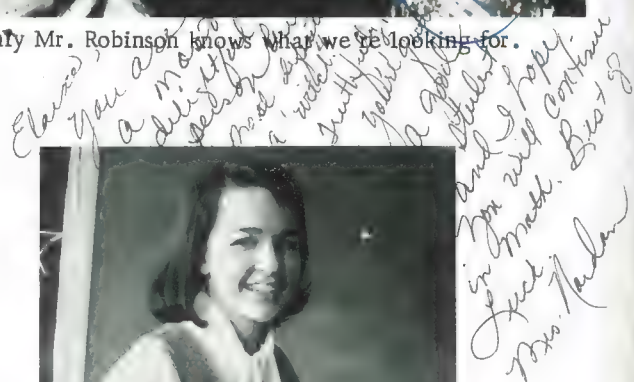 Mr. Robinson knows what we're looking for.
You are
a most
delightful
person
a "witch".
Truthfully
you're
a good
student
and I hope
you will continue
in Math. Best of
Luck
Mrs.